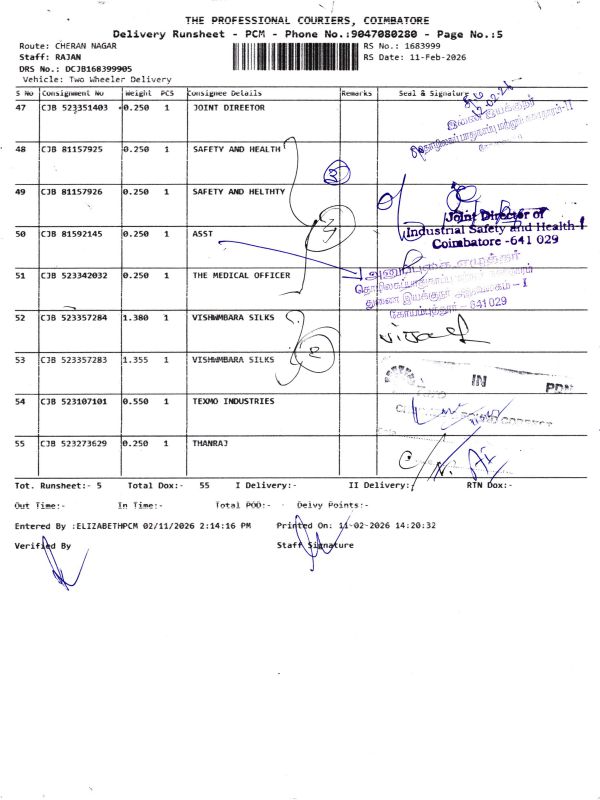 THE PROFESSIONAL COURIERS, COIMBATORE
Delivery Runsheet - PCM - Phone No.:9047080280 - Page No.:5
Route: CHERAN NAGAR
RS No.: 1683999
Staff: RAJAN
RS Date: 11-Feb-2026
DRS No.: DCJB168399905
Vehicle: Two Wheeler Delivery
S No Consignment No Weight PCS Consignee Details Remarks Seal & Signature
47 CJB 523351403 0.250 1 JOINT DIREETOR
48 CJB 81157925 0.250 1 SAFETY AND HEALTH
49 CJB 81157926 0.250 1 SAFETY AND HELTHTY
Joint Director of
Industrial Safety and Health-I
Coimbatore -641 029
50 CJB 81592145 0.250 1 ASST
51 CJB 523342032 0.250 1 THE MEDICAL OFFICER
கோயம்புத்தூர் - 641 029
52 CJB 523357284 1.380 1 VISHWMBARA SILKS
53 CJB 523357283 1.355 1 VISHWMBARA SILKS
2
IN
54 CJB 523107101 0.550 1 TEXMO INDUSTRIES
55 CJB 523273629 0.250 1 THANRAJ
Tot. Runsheet:- 5 Total Dox:- 55 I Delivery:- II Delivery:- RTN Dox:-
Out Time:- In Time:- Total POD:- Delvy Points:-
Entered By :ELIZABETHPCM 02/11/2026 2:14:16 PM Printed On: 11-02-2026 14:20:32
Verified By Staff Signature